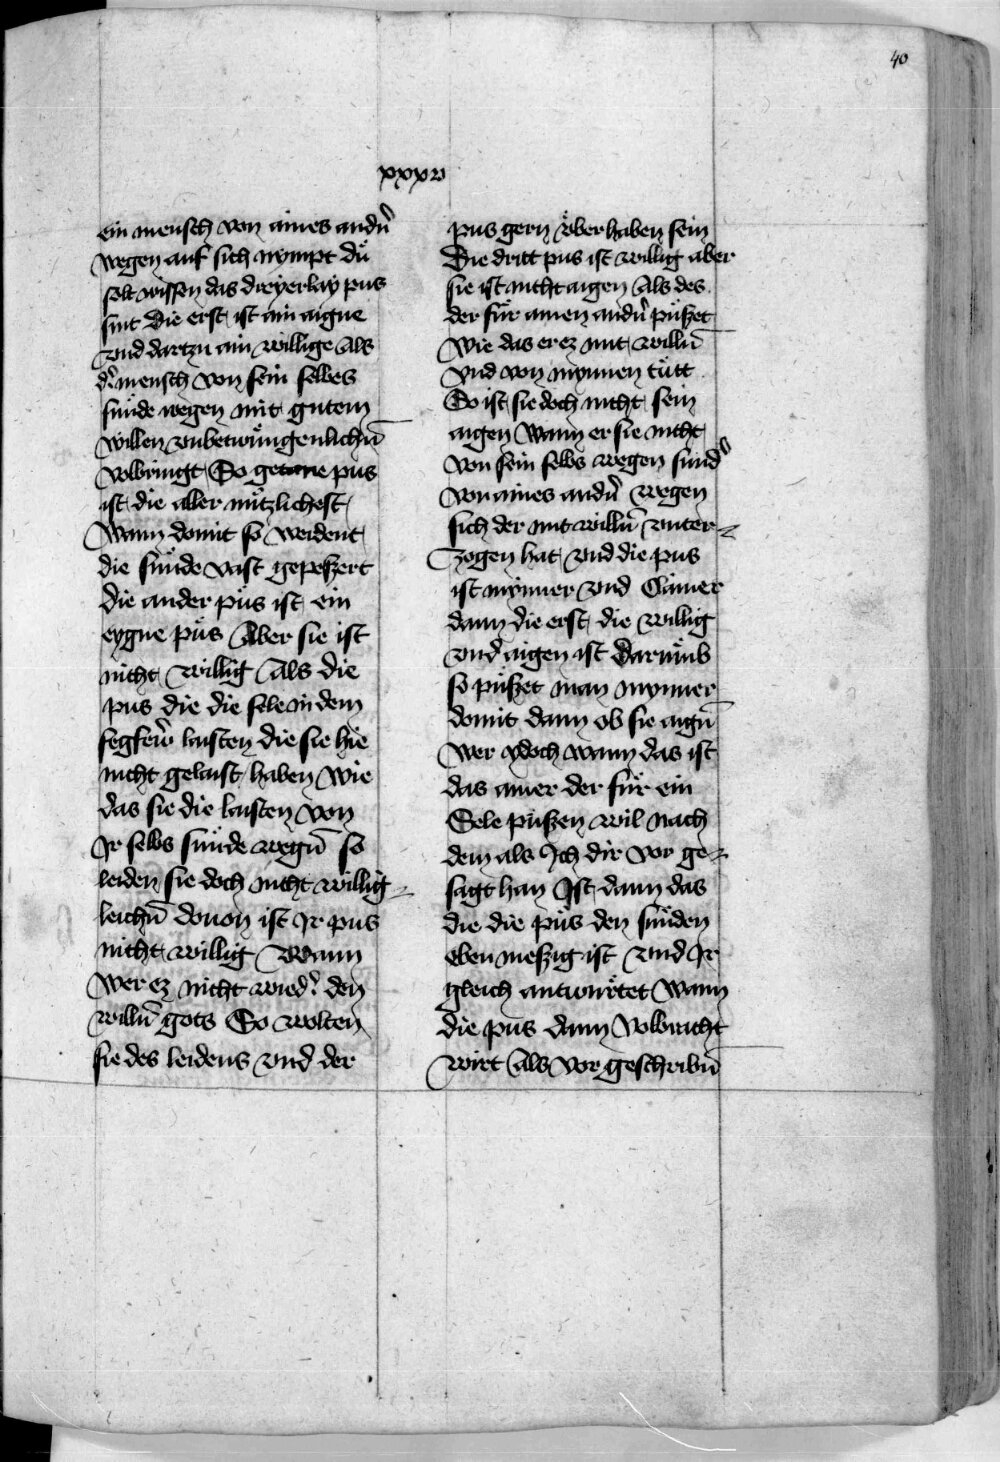 40
xxxv
ein mensch von aines andn̄
wegen auf sich nympt du
solt wissen das dreyerlay pus
sint Die erst ist ain aigne
vnd dartzu ain willige Als
d' mensch von sein selbes
sünde wegen mit gutem
willen vnbetwüngenlichn̄
volbringt So getane pus
ist die aller nützlichest
Wann domit so werdent
die sünde vast gepeszert
die ander püs ist ein
eygne püs Aber sie ist
nicht willig Als die
pus die die sele in dem
fegfew̄r laisten die sie hie
nicht gelaist haben Wie
das sie die laisten von
Ir selbs sünde wegn̄ so
leiden sie doch nicht willig-
leichn̄ douon ist Ir pus
nicht willig Wann
wer ez nicht wied' den
willn̄ gots So wolten
sie des leidens vnd der
pus gern v̈ber haben sein
Die dritt pus ist willig aber
sie ist nicht aigen Als des
der für ainen andn̄ püszet
Wie das er ez mit willn̄
vnd von mynnen tütt
So ist sie doch nicht sein
aigen Wann er sie nicht
von sein selbs wegen sund'
von aines andn̄ wegen
sich der mit willn̄ vnter-
zogen hat vnd die pus
ist mynner vnd Clainer
dann die erst die willig
vnd aigen ist Darumb
so püszet man mynner
domit dann ob sie aign̄
wer ydoch wann das ist
das ainer der für ein
Sele püszen wil nach
dem als Ich dir vor ge-
sagt han Ist dann das
die die püs den sünden
eben meszig ist vnd Ir
gleich antwürtet Wann
die pus dann volbracht
wirt Als vor geschribn̄